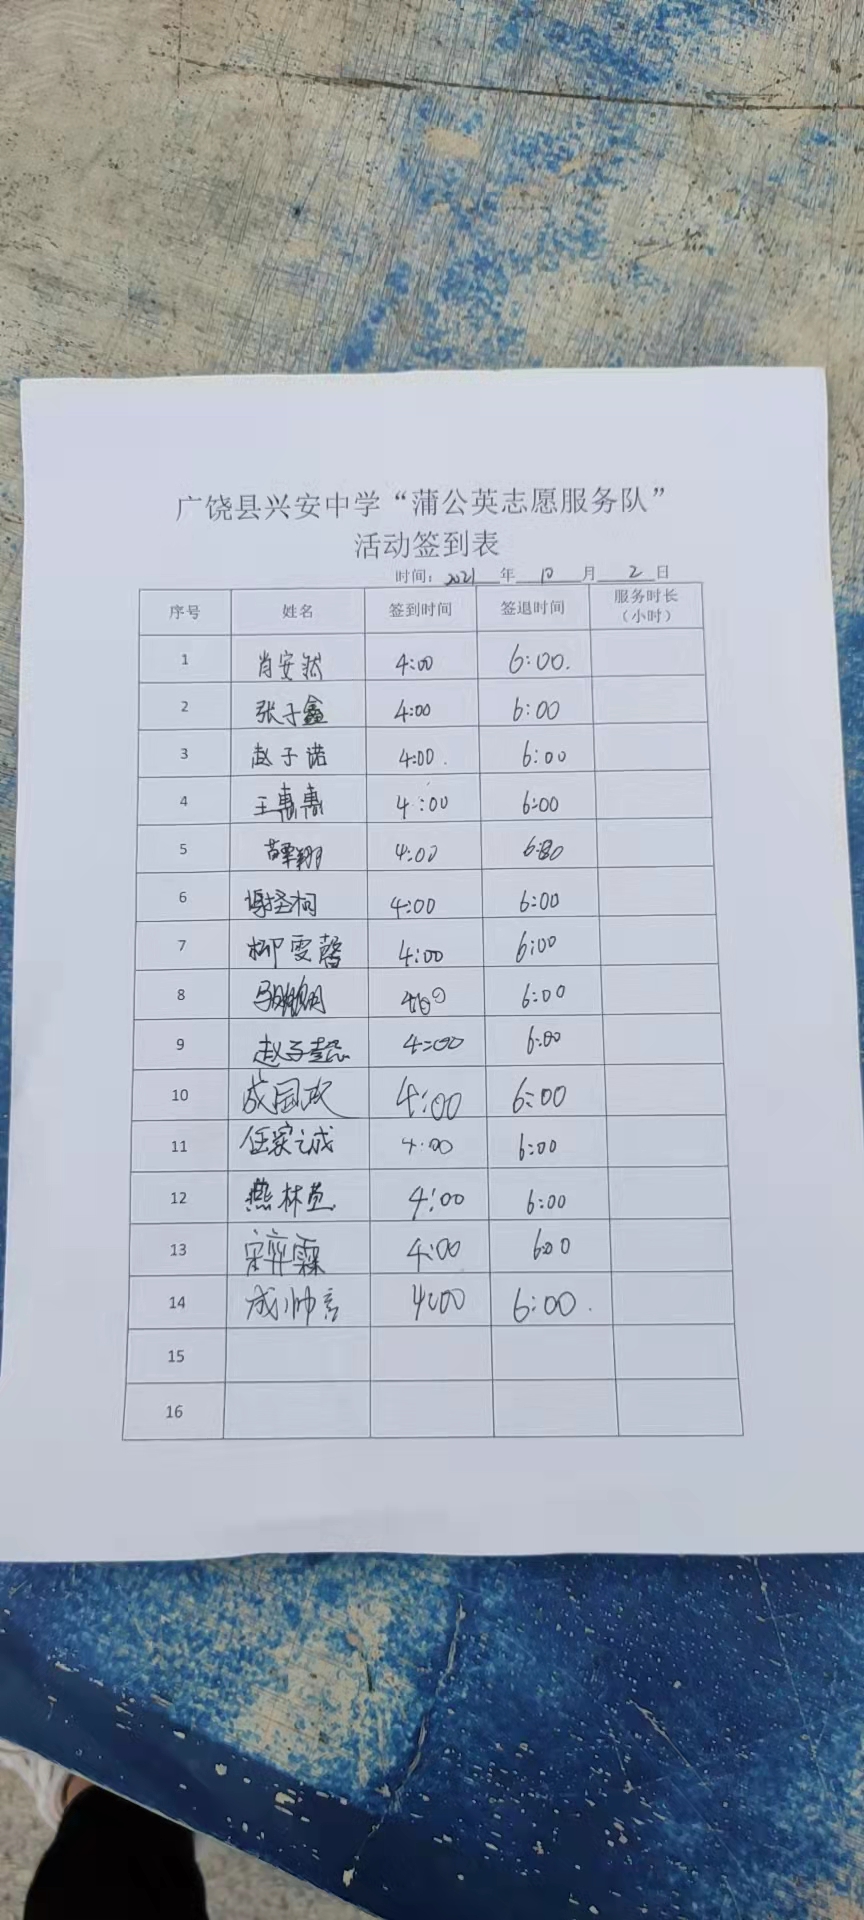 广饶县兴安中学“蒲公英志愿服务队”
活动签到表
时间：2021年10月2日
序号 姓名 签到时间 签退时间 服务时长（小时）
1 肖安然 4:00 6:00.
2 张子鑫 4:00 6:00
3 赵子诺 4:00. 6:00
4 王惠惠 4:00 6:00
5 4:00 6:00
6 4:00 6:00
7 柳雯馨 4:00 6:00
8 4:00 6:00
9 赵子懿 4:00 6:00
10 成国政 4:00 6:00
11 任实诚 4:00 6:00
12 燕林苊 4:00 6:00
13 宋弈霖 4:00 6:00
14 成帅言 4:00 6:00.
15
16